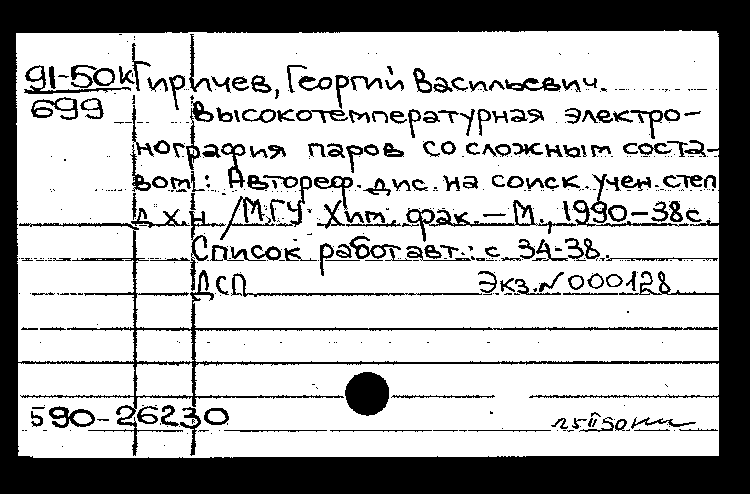 91-50к Гиричев, Георгий Васильевич.
699 Высокотемпературная электро-
нография паров со сложным соста-
вом: Автореф. дис. на соиск. учен. степ
д. х. н. /МГУ. Хим. фак. – М., 1990.-38с.
Список работ авт.: с. 34-38.
ДСП. Экз. N 000128.
590-26230